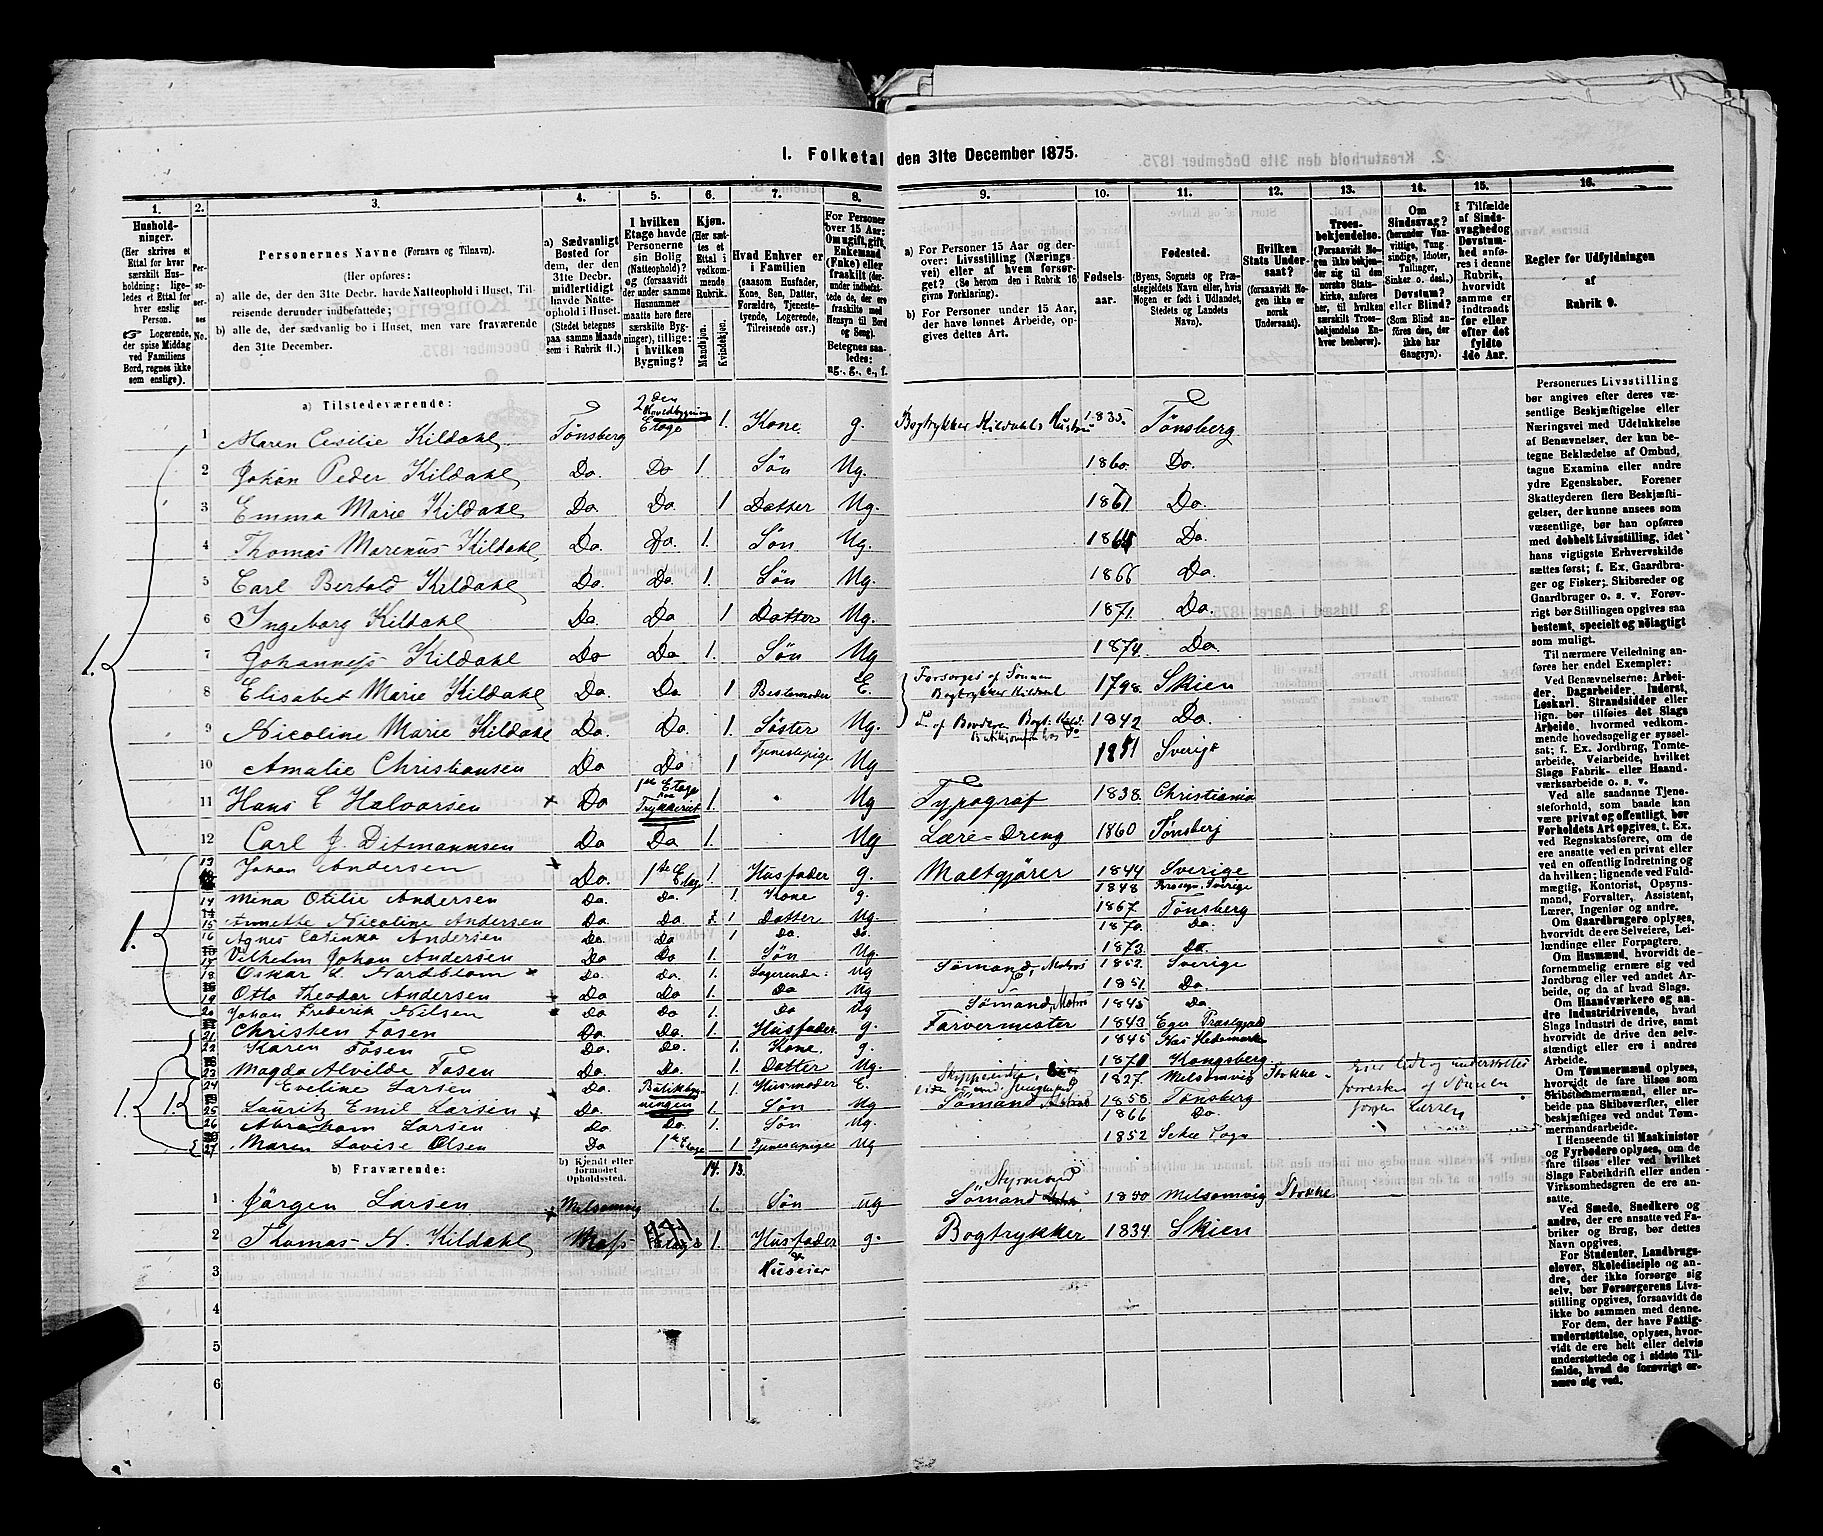 1. Folketal den 31te December 1875.
1. 2. 3. 4. 5. 6. 7. 8. 9. 10. 11. 12. 13. 14. 15. 16.
Husholdninger. (Her skrives et Ettal for hver særskilt Husholdning; ligeledes et Ettal for hver enslig Person. Logerende, der spise Middag ved Familiens Bord, regnes ikke som enslige).
Personernes No.
Personernes Navne (Fornavn og Tilnavn).
(Her opføres:
a) alle de, der den 31te Decbr. havde Natteophold i Huset, Tilreisende derunder indbefattede;
b) alle de, der sædvanlig bo i Huset, men vare fraværende den 31te December.
a) Sædvanligt Bosted for dem, der den 31te Decbr. midlertidigt havde Natteophold i Huset. (Stedet betegnes paa samme Maade som i Rubrik 11.)
I hvilken Etage havde Personerne sin Bolig (Natteophold)? og (forsaavidt der under Husnummer maatte høre flere særskilte Bygninger), tillige: i hvilken Bygning?
Kjøn. (Her sættes et Ettal i vedkommende Rubrik. Mandkjøn. Kvindekjøn.
Hvad Enhver er i Familien (saasom Husfader, Kone, Søn, Datter, Forældre, Tjenestetyende, Logerende, Tilreisende osv.)
For Personer over 15 Aar: Om ugift, gift, Enkemand (Enke) eller fraskilt (derunder indbefattede de, der ere fraskilte med Hensyn til Bord og Seng). Betegnes saaledes: ug., g., e., f.
a) For Personer 15 Aar og derover: Livsstilling (Næringsvei) eller af hvem forsørget? (Se herom den i Rubrik 16 givne Forklaring).
b) For Personer under 15 Aar, der have lønnet Arbeide, opgives dettes Art.
Fødselsaar.
Fødested. (Byens, Sognets og Præstegjeldets Navn, eller, hvis Nogen er født i Udlandet, Stedets og Landets Navn).
Hvilken Stats Undersaat? (forsaavidt Nogen ikke er norsk Undersaat).
Troesbekjendelse. (Forsaavidt Nogen ikke bekjender sig til den norske Statskirke, anføres her, til hvilken særskilt Troesbekjendelse Enhver henhører).
Om Sindssvag? (herunder Vanvittige, Tungsindige, Idioter, Tullinger, Sinker o. desl.), Døvstum? eller Blind? (Som Blind anføres den, der ikke har Gangsyn).
I Tilfælde af Sindssvaghed og Døvstumhed anføres i denne Rubrik, hvorvidt samme er indtraadt før eller efter det fyldte 4de Aar.
Regler for Udfyldningen af Rubrik 9.
a) Tilstedeværende:
1 Maren Cesilie Kildahl Tønsberg 2den Hovedbygning Etage 1. Kone g. Bogtrykker Kildahls Hustru 1835 Tønsberg
2 Johan Peder Kildahl Do. Do 1. Søn Ug. 1860 Do.
3 Emma Marie Kildahl Do. Do. 1 Datter Ug. 1861 Do.
4 Thomas Marenus Kildahl Do. Do. 1. Søn Ug. Do.
5 Carl Bertold Kildahl Do. Do. 1. Søn Ug. 1866 Do.
6 Ingeborg Kildahl Do. Do 1 Datter Ug. 1871 Do.
7 Johannes Kildahl Do Do 1. Søn Ug 1874 Do.
8 Elisabet Marie Kildahl Do. Do. 1 Bestemoder E. Forsørges af Sønnen Bogtrykker Kildahl 1798 Skien
9 Nicoline Marie Kildahl Do. Do. 1. Søster Ug. F. af Broderen Bogt. 1842 Do.
10 Amalie Christiansen Do Do 1 Tjenestepige Ug Sverige
11 Hans C Halvorsen × Do 1ste Etage Trykkeriet 1. Ug Typograf 1838. Christiania
12 Carl J. Ditmannsen Do Do 1. Ug Lære-Dreng 1860 Tønsberg
1. 13 Johan Andersen × Do. 1ste Etage 1. Husfader g. Maltgjører 1844 Sverige
14 Mina Otilie Andersen Do. Do. 1 Kone g. 1848 Sverige
15 Annette Nicoline Andersen Do. Do 1 Datter Ug. 1867 Tønsberg
16 Agnes Catinka Andersen Do. Do 1 Do. Do. 1870 Do.
17 Vilhelm Johan Andersen Do. Do. 1. Søn Ug. 1873. Do.
18 Oskar L Nordblom × Do. Do. 1. Logerende: Ug Sømand, Matros 1852 Sverige
19 Otto Theodor Andersen × Do Do. 1. Do Ug 1851. Do.
20 Johan Frederik Nilsen × Do Do 1. Do Ug Sømand, Matros 1845 Do.
21 Christen Fosen Do. Do. 1. Husfader g. Farvermester 1843 Eger Præstgjeld
22 Karen Fosen Do. Do. 1. Kone. g. Hedemarken
23 Magda Alvilde Fosen Do. Do. 1. Datter Ug. Kongsberg
24 Eveline Larsen × Do. Butikbygningen 1 Husmoder E. 1827. Melsomvig Stokke
25 Lauritz Emil Larsen × Do. 1. Søn Ug Sømand Matros 1858 Tønsberg
26 Abraham Larsen Do. Do. 1. Søn Ug. 1866 Do. Jørgen Larsen
27 Maren Lovise Olsen Do 1ste Etage 1 Tjenestepige Ug 1852
14. 13.
b) Fraværende:
b) Kjendt eller formodet Opholdssted.
1 Jørgen Larsen × Melsomvig 1. Søn ug Styrmand Sømand 1850 Melsomvig Stokke
2 Thomas N. Kildahl Etage 1. Husfader & Huseier g. Bogtrykker 1834 Skien
3
4
5
6
Personernes Livsstilling
bør angives efter deres væsentlige Beskjæftigelse eller
Næringsvei med Udelukkelse
af Benævnelser, der kun betegne Beklædelse af Ombud,
tagne Examina eller andre
ydre Egenskaber. Forener
Skatteyderen flere Beskjæftigelser, der kunne ansees som
væsentlige, bør han opføres
med dobbelt Livsstilling, idet
hans vigtigste Erhvervskilde
sættes først; f. Ex. Gaardbruger og Fisker; Skibsreder og
Gaardbruger o. s. v. Forøvrigt bør Stillingen opgives saa
bestemt, specielt og nøiagtigt
som muligt.
Til nærmere Veiledning anføres her endel Exempler:
Ved Benævnelserne: Arbeider, Dagarbeider, Inderst,
Løskarl, Strandsidder eller
lign. bør tilføies det Slags
Arbeide, hvormed vedkommende hovedsagelig er sysselsat; f. Ex. Jordbrug, Tomtearbeide, Veiarbeide, hvilket
Slags Fabrik- eller Haandværksarbeide o. s. v.
Ved alle saadanne Tjenesteforhold, som baade kan
være privat og offentligt, bør
Forholdets Art opgives, t. Ex.
ved Regnskabsførere, om de
ere ansatte ved en privat eller
ved en offentlig Indretning og
da hvilken; lignende ved Fuldmægtig, Kontorist, Opsynsmand, Forvalter, Assistent,
Lærer, Ingeniør og andre.
Om Gaardbrugere oplyses,
hvorvidt de ere Selveiere, Leilændinge eller Forpagtere.
Om Husmænd, hvorvidt de
fornemmelig ernære sig ved
Jordbrug eller ved andet Arbeide, og da af hvad Slags.
Om Haandværkere og andre Industridrivende, hvad
Slags Industri de drive, samt
hvorvidt de drive den selvstændigt eller ere i andres
Arbeide.
Om Tømmermænd oplyses,
hvorvidt de fare tilsøs som
Skibstømmermænd, eller arbeide paa Skibsværfter, eller
beskjæftiges ved andet Tømmermandsarbeide.
I Henseende til Maskinister
og Fyrbødere oplyses, om de
fare tilsøs eller ved hvilket
Slags Fabrikdrift eller anden
Virksomhedsgren de ere ansatte.
Ved Smede, Snedkere og
andre, der ere ansatte ved Fabriker og Brug, bør dettes
Navn opgives.
For Studenter, Landbrugselever, Skoledisciple og andre, der ikke forsørge sig
selv, bør Forsørgerens Livsstilling opgives, forsaavidt de
ikke bo sammen med denne.
For dem, der have Fattigunderstøttelse, oplyses, hvorvidt de ere helt eller delvis
understøttede og i sidste Tilfælde, hvad de forøvrigt ernære sig ved.